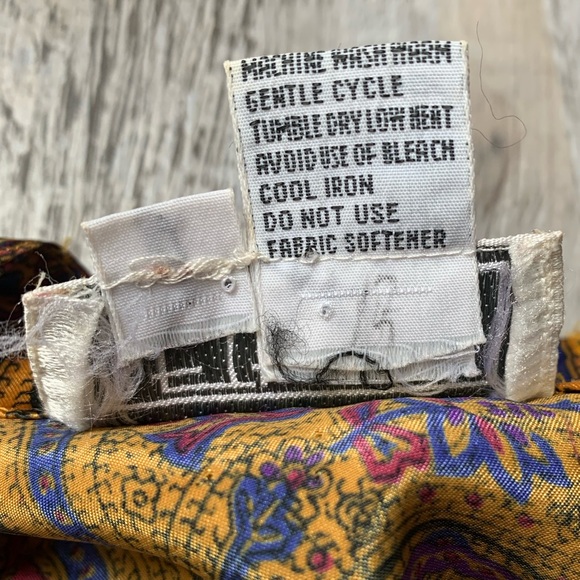 MACHINE WASH WARM
GENTLE CYCLE
TUMBLE DRY LOW HEAT
AVOID USE OF BLEACH
COOL IRON
DO NOT USE
FABRIC SOFTENER